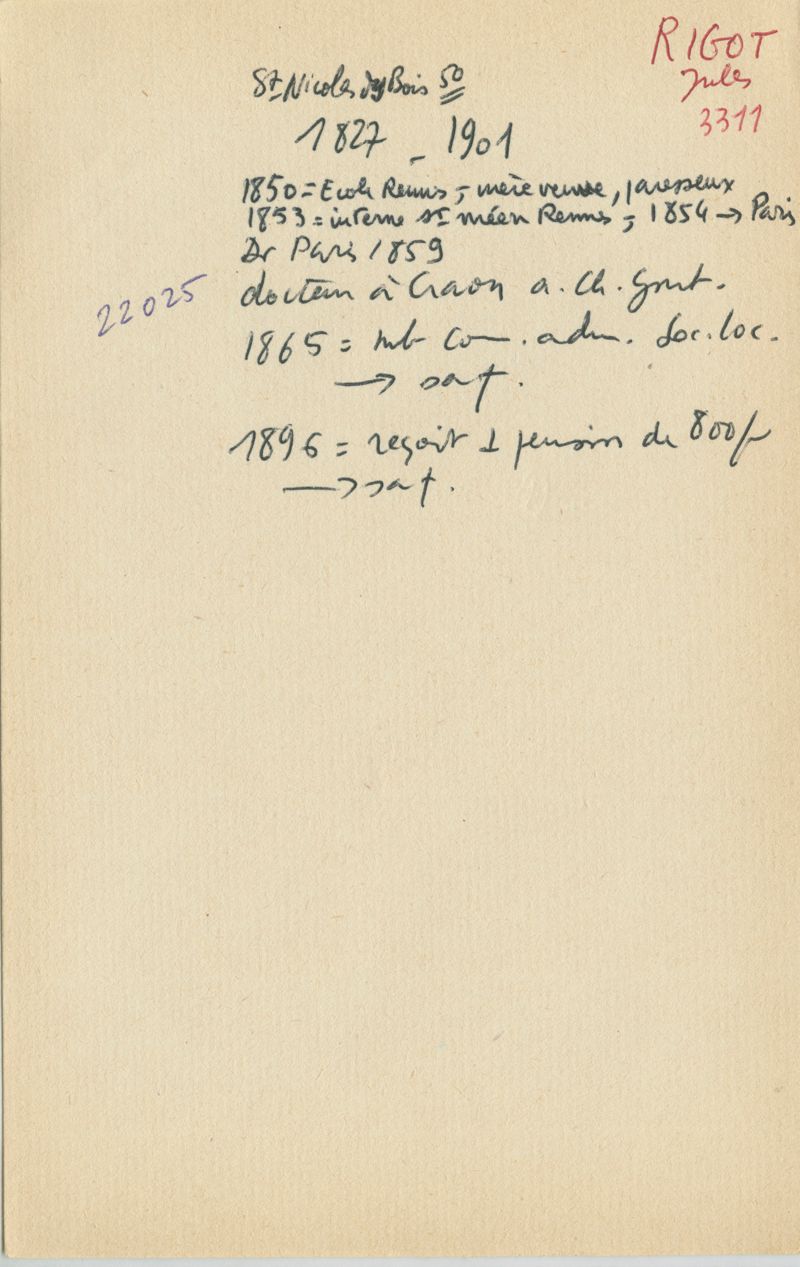 RIGOT
Jules
3311
St Nicolas des Bois 50
1827 - 1901
1850 = Ecole Rennes ; mère veuve, paresseux
1853 = interne St méen Rennes ; 1854 → Paris
Dr Paris 1859
22025
docteur à Craon a. Ch. Gont.
1865 = mb Com. adm. Soc. loc.
→ sa †.
1896 = reçoit 1 pension de 800f
→ sa †.